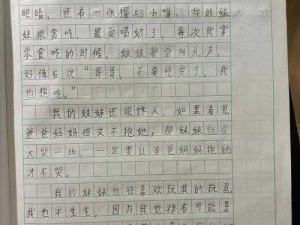 眼睛，还有一张樱桃小嘴，我的妹
妹很贪吃，最爱喝奶了，每次我拿
零食吃的时候，妹妹都会
好像在说“哥哥，不要吃完了，我
也想吃。”
我的妹妹还很怪人，如果看见
爸爸妈妈但又不抱她，那妹妹就会
大哭一场，一定要让爸爸妈妈抱她
才不哭。
我的妹妹也很喜欢玩我的玩具
我也不生气，因为我觉得有可能是